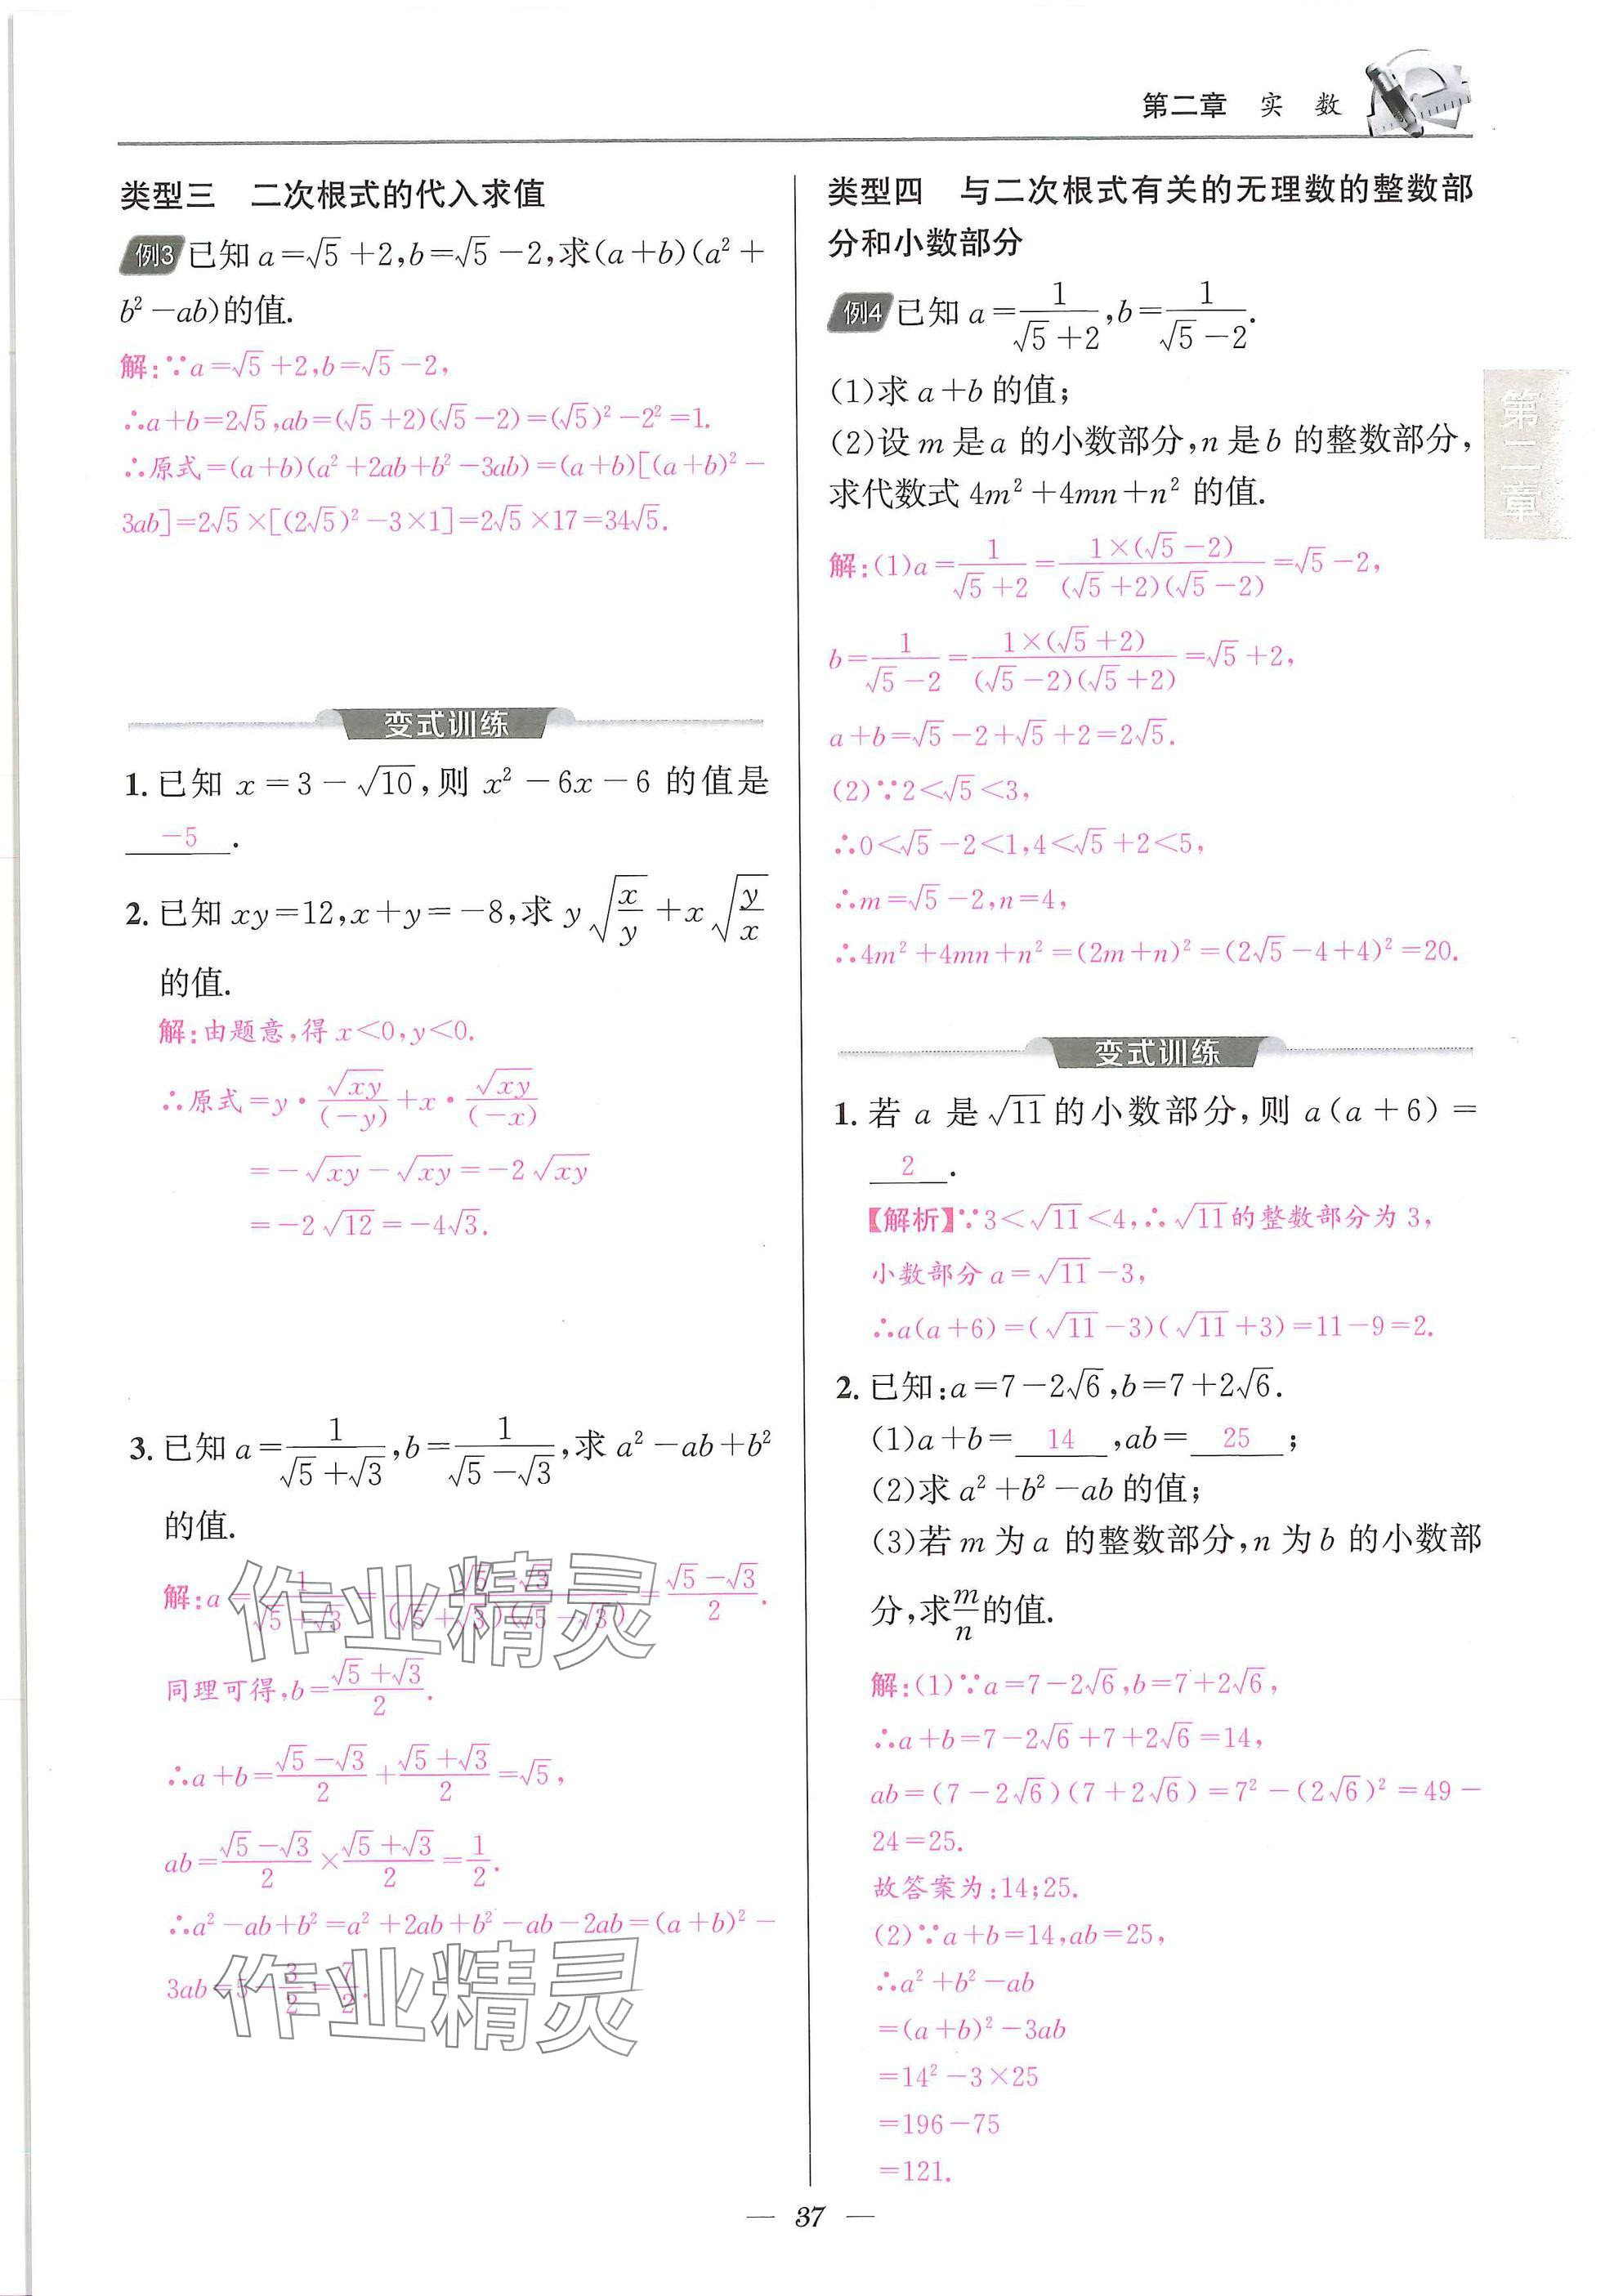 第二章 实 数
类型三 二次根式的代入求值
例3 已知 a=√5+2,b=√5-2,求(a+b)(a²+
b²-ab)的值.
解:∵a=√5+2,b=√5-2,
∴a+b=2√5,ab=(√5+2)(√5-2)=(√5)²-2²=1.
∴原式=(a+b)(a²+2ab+b²-3ab)=(a+b)[(a+b)²-
3ab]=2√5×[(2√5)²-3×1]=2√5×17=34√5.
变式训练
1. 已知 x=3-√10,则 x²-6x-6 的值是
-5.
2. 已知 xy=12,x+y=-8,求 y√(x/y)+x√(y/x)
的值.
解:由题意,得 x<0,y<0.
∴原式=y·√xy/(-y)+x·√xy/(-x)
=-√xy-√xy=-2√xy
=-2√12=-4√3.
3. 已知 a=1/(√5+√3),b=1/(√5-√3),求 a²-ab+b²
的值.
解:a=1/(√5+√3)=(√5-√3)/((√5+√3)(√5-√3))=(√5-√3)/2.
同理可得,b=(√5+√3)/2.
∴a+b=(√5-√3)/2+(√5+√3)/2=√5,
ab=(√5-√3)/2×(√5+√3)/2=1/2.
∴a²-ab+b²=a²+2ab+b²-ab-2ab=(a+b)²-
3ab=5-3/2=7/2.
作业精灵
作业精灵
类型四 与二次根式有关的无理数的整数部
分和小数部分
例4 已知 a=1/(√5+2),b=1/(√5-2).
(1)求 a+b 的值;
(2)设 m 是 a 的小数部分,n 是 b 的整数部分,
求代数式 4m²+4mn+n² 的值.
解:(1)a=1/(√5+2)=1×(√5-2)/((√5+2)(√5-2))=√5-2,
b=1/(√5-2)=1×(√5+2)/((√5-2)(√5+2))=√5+2,
a+b=√5-2+√5+2=2√5.
(2)∵2<√5<3,
∴0<√5-2<1,4<√5+2<5,
∴m=√5-2,n=4,
∴4m²+4mn+n²=(2m+n)²=(2√5-4+4)²=20.
变式训练
1. 若 a 是√11的小数部分,则 a(a+6)=
2.
【解析】∵3<√11<4,∴√11的整数部分为 3,
小数部分 a=√11-3,
∴a(a+6)=(√11-3)(√11+3)=11-9=2.
2. 已知:a=7-2√6,b=7+2√6.
(1)a+b=14,ab=25;
(2)求 a²+b²-ab 的值;
(3)若 m 为 a 的整数部分,n 为 b 的小数部
分,求m/n的值.
解:(1)∵a=7-2√6,b=7+2√6,
∴a+b=7-2√6+7+2√6=14,
ab=(7-2√6)(7+2√6)=7²-(2√6)²=49-
24=25.
故答案为:14;25.
(2)∵a+b=14,ab=25,
∴a²+b²-ab
=(a+b)²-3ab
=14²-3×25
=196-75
=121.
第二章
— 37 —